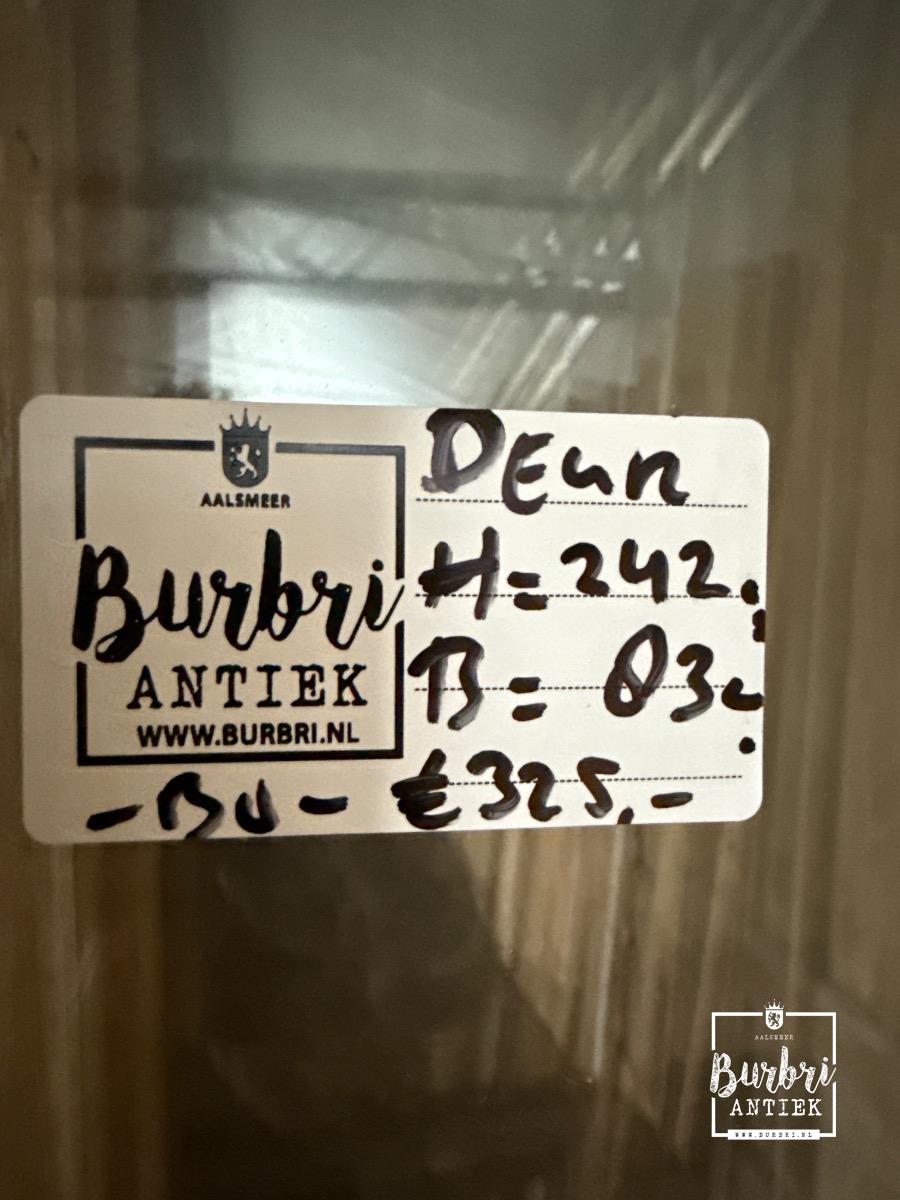 AALSMEER
Burbri
ANTIEK
WWW.BURBRI.NL
DEUR
H=242.
B= 83
€325,-
-BU-
AALSMEER
Burbri
ANTIEK
WWW.BURBRI.NL